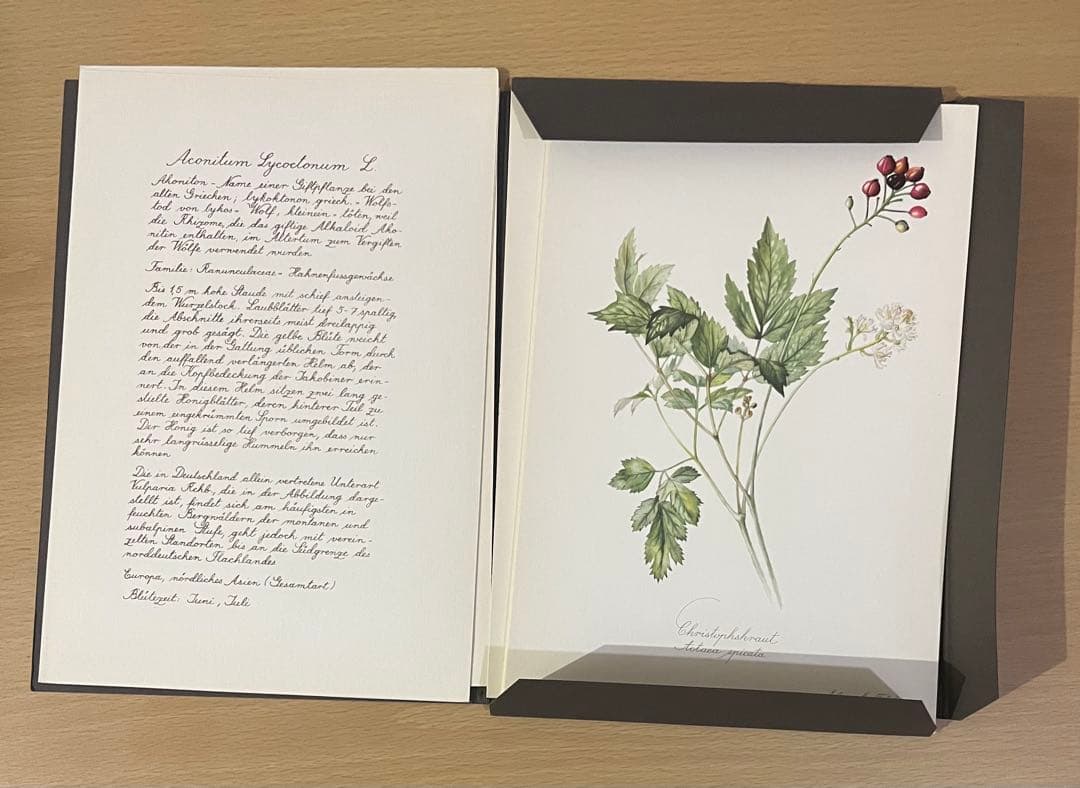 Aconitum Lycoctonum L.
Akoniton - Name einer Giftpflanze bei den
alten Griechen; lykoktonon griech. - Wolfs-
tod von lykos - Wolf, kteinein - töten, weil
die Rhizome, die das giftige Alkaloid Ako-
nitin enthalten, im Altertum zum Vergiften
der Wölfe verwendet wurden
Familie: Ranunculaceae - Hahnenfussgewächse
Bis 1,5 m hohe Staude mit schief ansteigen-
dem Wurzelstock. Laubblätter tief 5-7 spaltig,
die Abschnitte ihrerseits meist dreilappig
und grob gesägt. Die gelbe Blüte weicht
von der in der Gattung üblichen Form durch
den auffallend verlängerten Helm ab, der
an die Kopfbedeckung der Jakobiner erin-
nert. In diesem Helm sitzen zwei lang ge-
stielte Honigblätter, deren hinterer Teil zu
einem eingekrümmten Sporn umgebildet ist.
Der Honig ist so tief verborgen, dass nur
sehr langrüsselige Hummeln ihn erreichen
können
Die in Deutschland allein vertretene Unterart
Vulparia Rchb., die in der Abbildung darge-
stellt ist, findet sich am häufigsten in
feuchten Bergwäldern der montanen und
subalpinen Stufe, geht jedoch mit verein-
zelten Standorten bis an die Südgrenze des
norddeutschen Flachlandes
Europa, nördliches Asien (Gesamtart)
Blütezeit: Juni, Juli
Christophskraut
Actaea spicata